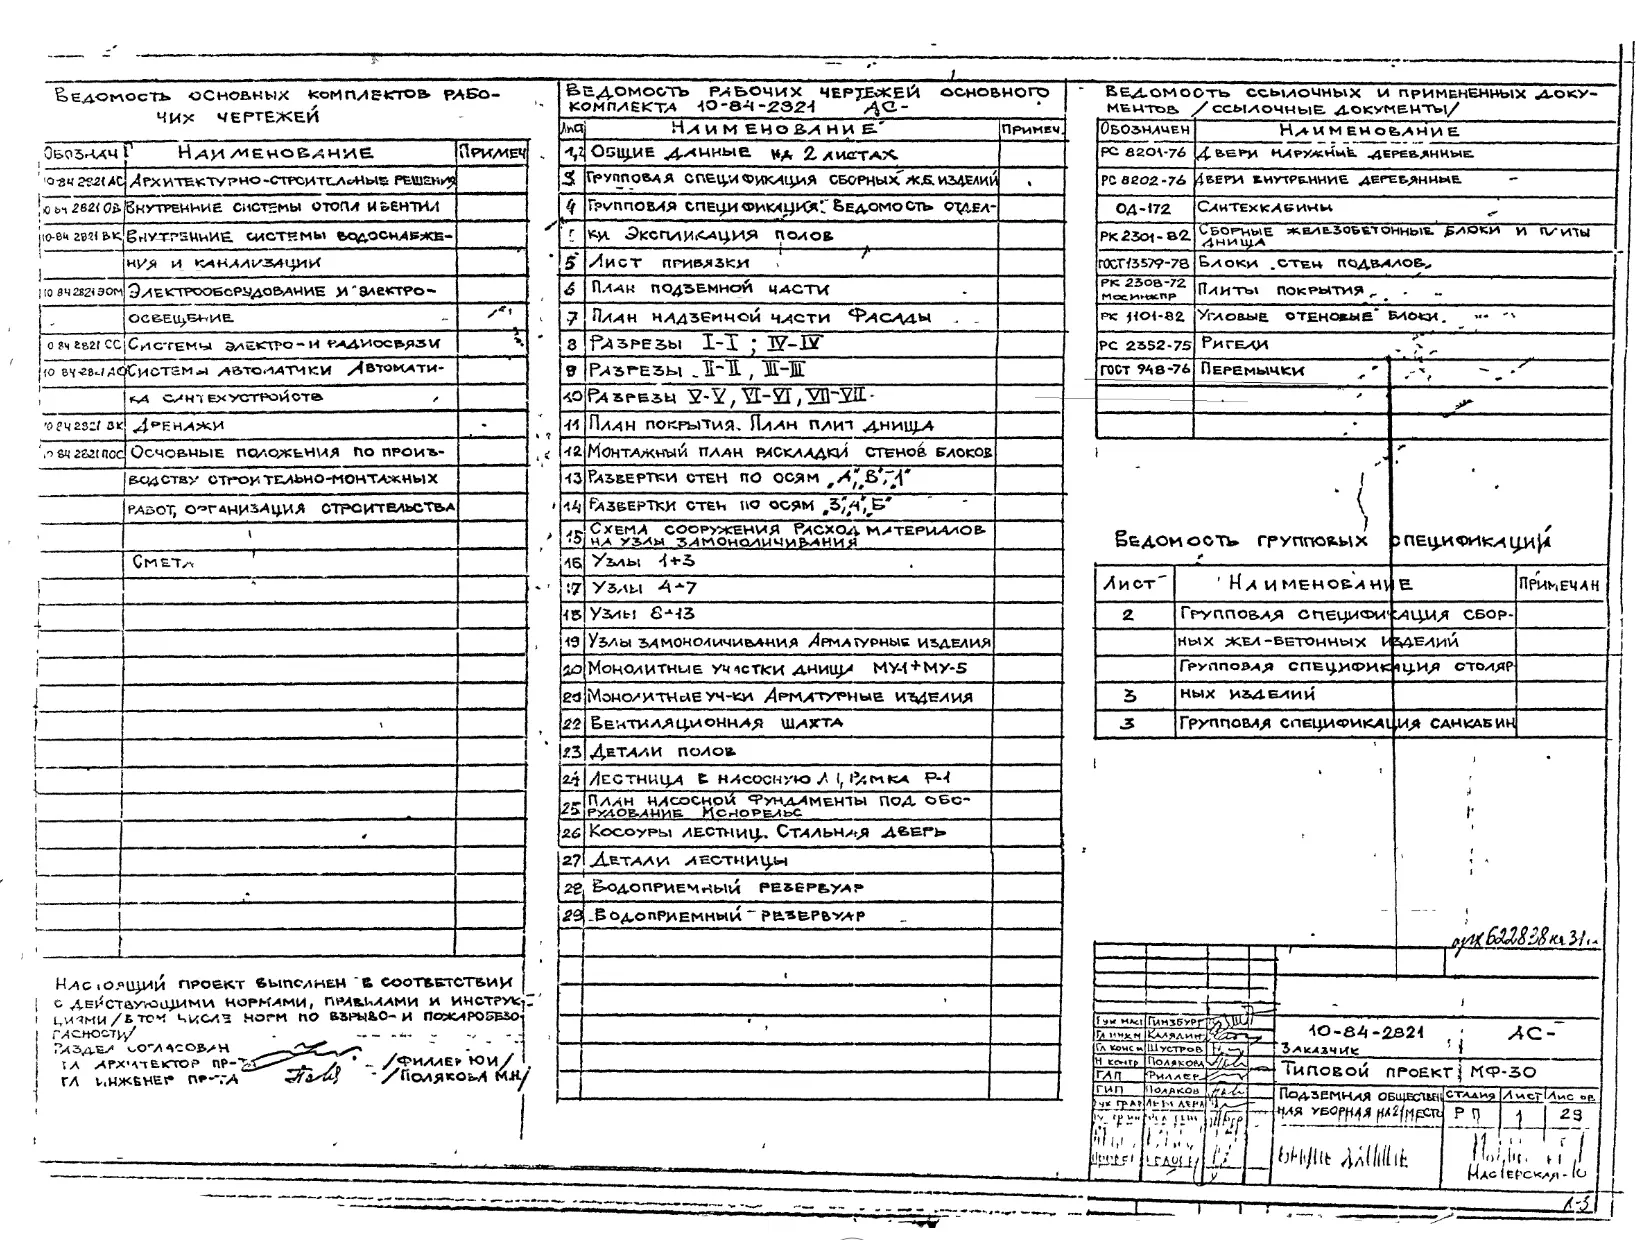 Ведомость основных комплектов рабо-
чих чертежей
Обознач Наименование Примеч
10-84-2821 АС Архитектурно-строительные решения
10-84-2821 ОВ Внутренние системы отопл и вентил
10-84-2821 ВК Внутренние системы водоснабже-
ния и канализации
10-84-2821 ЭОМ Электрооборудование и электро-
освещение
10-84-2821 СС Системы электро- и радиосвязи
Системы автоматики Автомати-
ка сантехустройств
Дренажи
10-84-2821 ПОС Основные положения по произ-
водству строительно-монтажных
работ, организация строительства
Смета
Настоящий проект выполнен в соответствии
с действующими нормами, правилами и инструк-
циями /в том числе норм по взрыво- и пожаробезо-
пасности/
Раздел согласован
гл архитектор пр-та /Филлер Ю И/
гл инженер пр-та /Полякова М.Н/
Ведомость рабочих чертежей основного
комплекта 10-84-2821 АС-
Наименование Примеч.
1,2 Общие данные на 2 листах
3 Групповая спецификация сборных ж.б. изделий
4 Групповая спецификация. Ведомость отдел-
ки Экспликация полов
5 Лист привязки
6 План подземной части
7 План надземной части Фасады
8 Разрезы I-I ; IV-IV
9 Разрезы II-II , III-III
10 Разрезы V-V, VI-VI, VII-VII
11 План покрытия. План плит днища
12 Монтажный план раскладки стенов блоков
13 Развертки стен по осям
14 Развертки стен по осям
15 Схема сооружения Расход материалов
на узлы замоноличивания
16 Узлы 1÷3
17 Узлы 4÷7
18 Узлы 8÷13
19 Узлы замоноличивания Арматурные изделия
20 Монолитные участки днища МУ-1÷МУ-5
21 Монолитные уч-ки Арматурные изделия
22 Вентиляционная шахта
23 Детали полов
24 Лестница в насосную Л 1, Рамка Р-1
25 План насосной Фундаменты под обо-
рудование Монорельс
26 Косоуры лестниц. Стальная дверь
27 Детали лестницы
28 Водоприемный резервуар
29 Водоприемный резервуар
Ведомость ссылочных и примененных доку-
ментов /ссылочные документы/
Обозначен Наименование
РС 8201-76 Двери наружные деревянные
РС 8202-76 Двери внутренние деревянные
ОД-172 Сантехкабины
РК 2301-82 Сборные железобетонные блоки и плиты
днища
ГОСТ 13579-78 Блоки стен подвалов
РК 2308-72 Плиты покрытия
Мосинжпр
РК 1101-82 Угловые стеновые блоки
РС 2352-75 Ригели
ГОСТ 948-76 Перемычки
Ведомость групповых спецификаций
Лист Наименование Примечан
2 Групповая спецификация сбор-
ных жел-бетонных изделий
Групповая спецификация столяр
3 ных изделий
3 Групповая спецификация санкабин
622838
Гинзбург
Калядин
Гл конс Шустров
Н контр Полякова
ГАП Филлер
ГИП Поляков
10-84-2821 АС-
Заказчик
Типовой проект МФ-30
Подземная обществен
ная уборная на 21 место
стадия Лист
РП 1 29
Мастерская-10